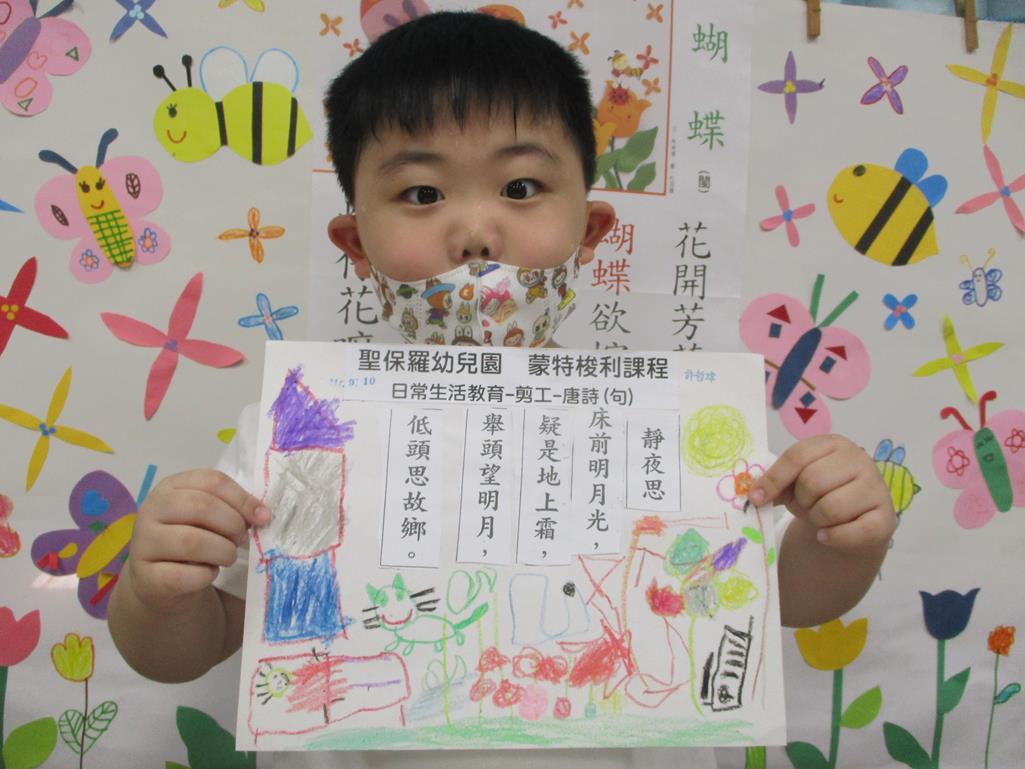 蝴蝶(閩)
花開芳
蝴蝶欲
花
聖保羅幼兒園 蒙特梭利課程
日常生活教育-剪工-唐詩(句)
靜夜思
床前明月光，
疑是地上霜，
舉頭望明月，
低頭思故鄉。